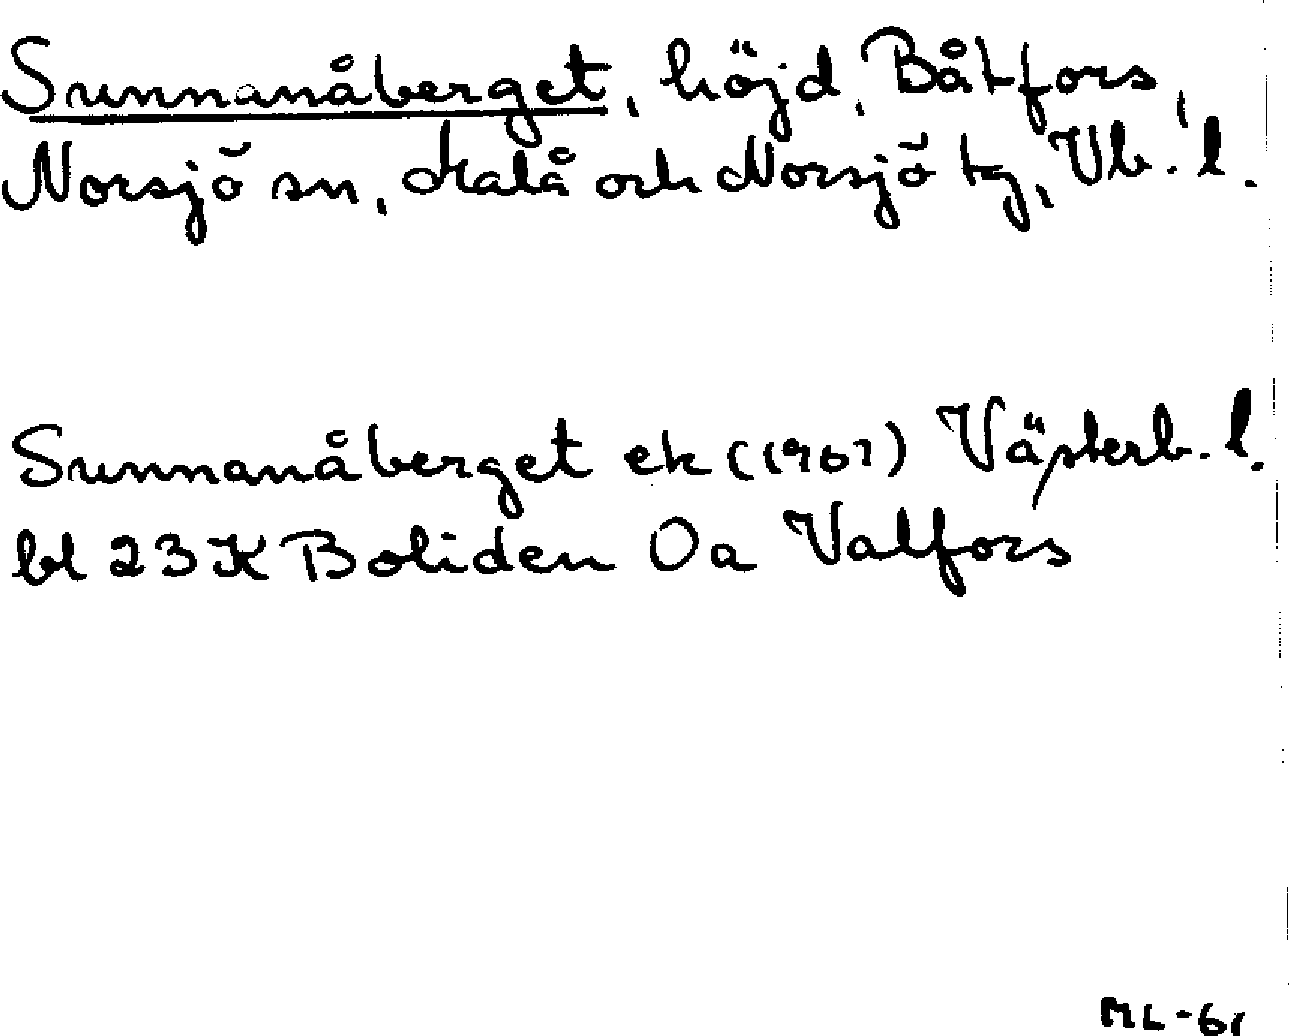 Sunnanåberget, höjd, Båtfors,
Norsjö sn, Malå och Norsjö tg, Vb. l.
Sunnanåberget ek (1967) Västerb. l.
bl 23 K Boliden 0a Valfors
ML-61